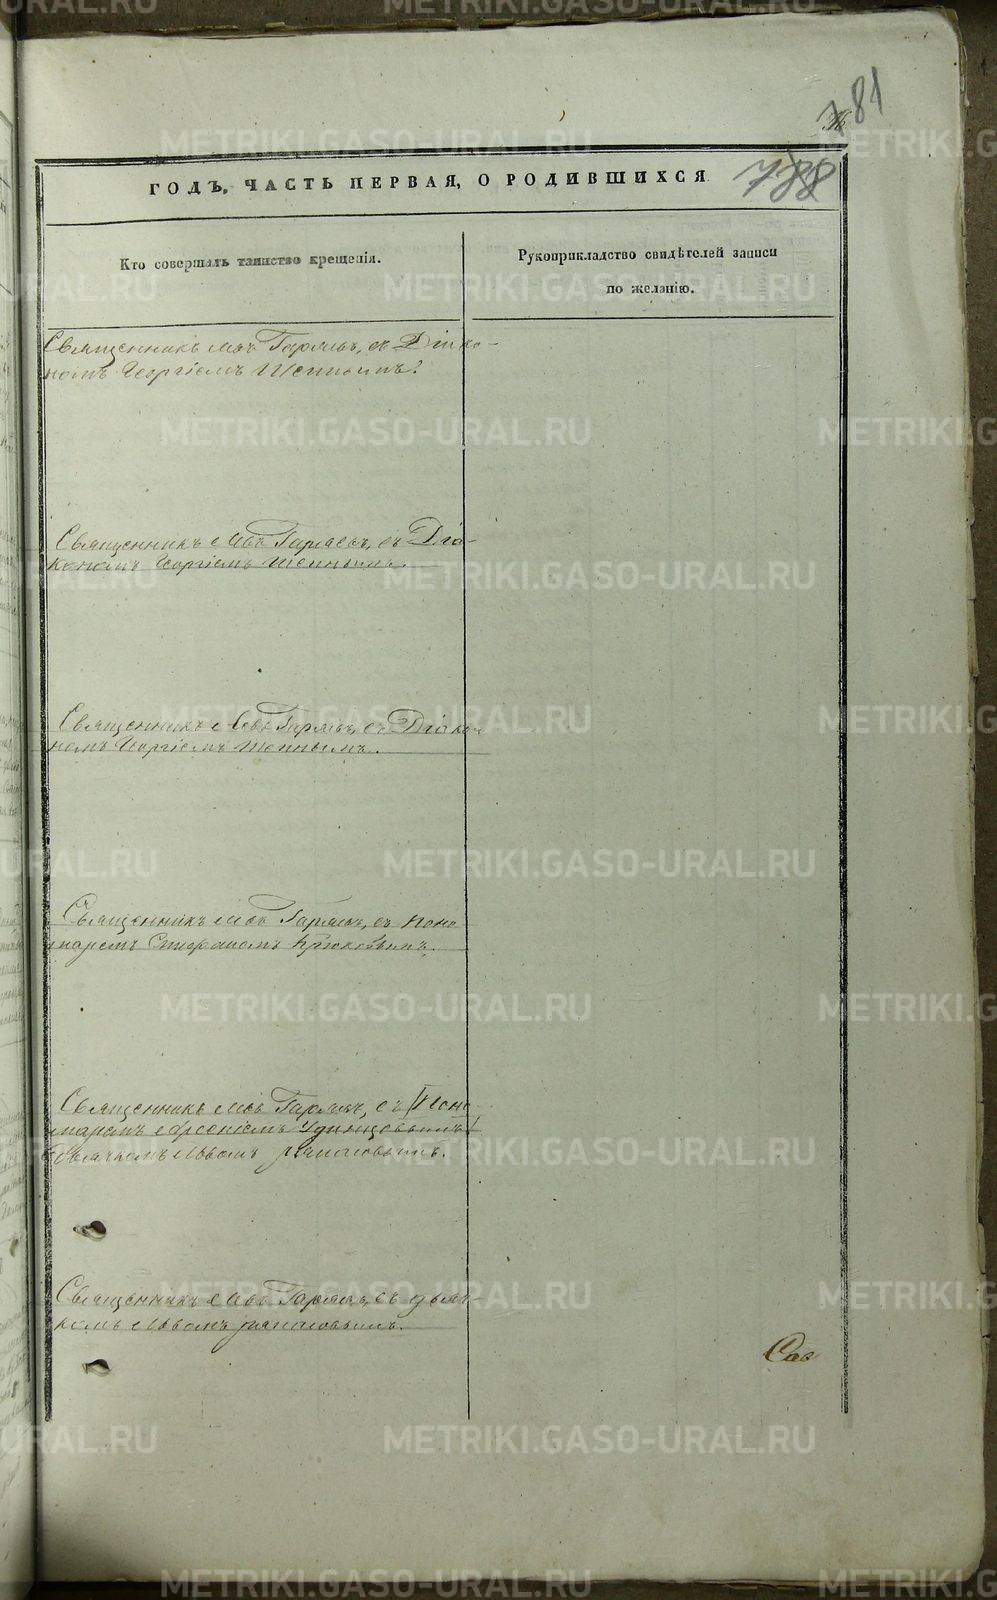 781
788
ГОДЪ, ЧАСТЬ ПЕРВАЯ, О РОДИВШИХСЯ
Кто совершалъ таинство крещенія.
Рукоприкладство свидѣтелей записи
по желанію.
Священникъ Левъ Гаряевъ, съ Діако-
номъ Георгіемъ
Священникъ Левъ Гаряевъ, съ Діа-
кономъ Георгіемъ
Священникъ Левъ Гаряевъ, съ Діако-
номъ Георгіемъ
Священникъ Левъ Гаряевъ, съ Поно
маремъ Стефаномъ Крюковымъ.
Священникъ Левъ Гаряевъ, съ Поно-
маремъ Арсеніемъ Удинцовымъ
Дьячкомъ Львомъ
Священникъ Левъ Гаряевъ, съ дьяч-
комъ Львомъ
METRIKI.GASO-URAL.RU